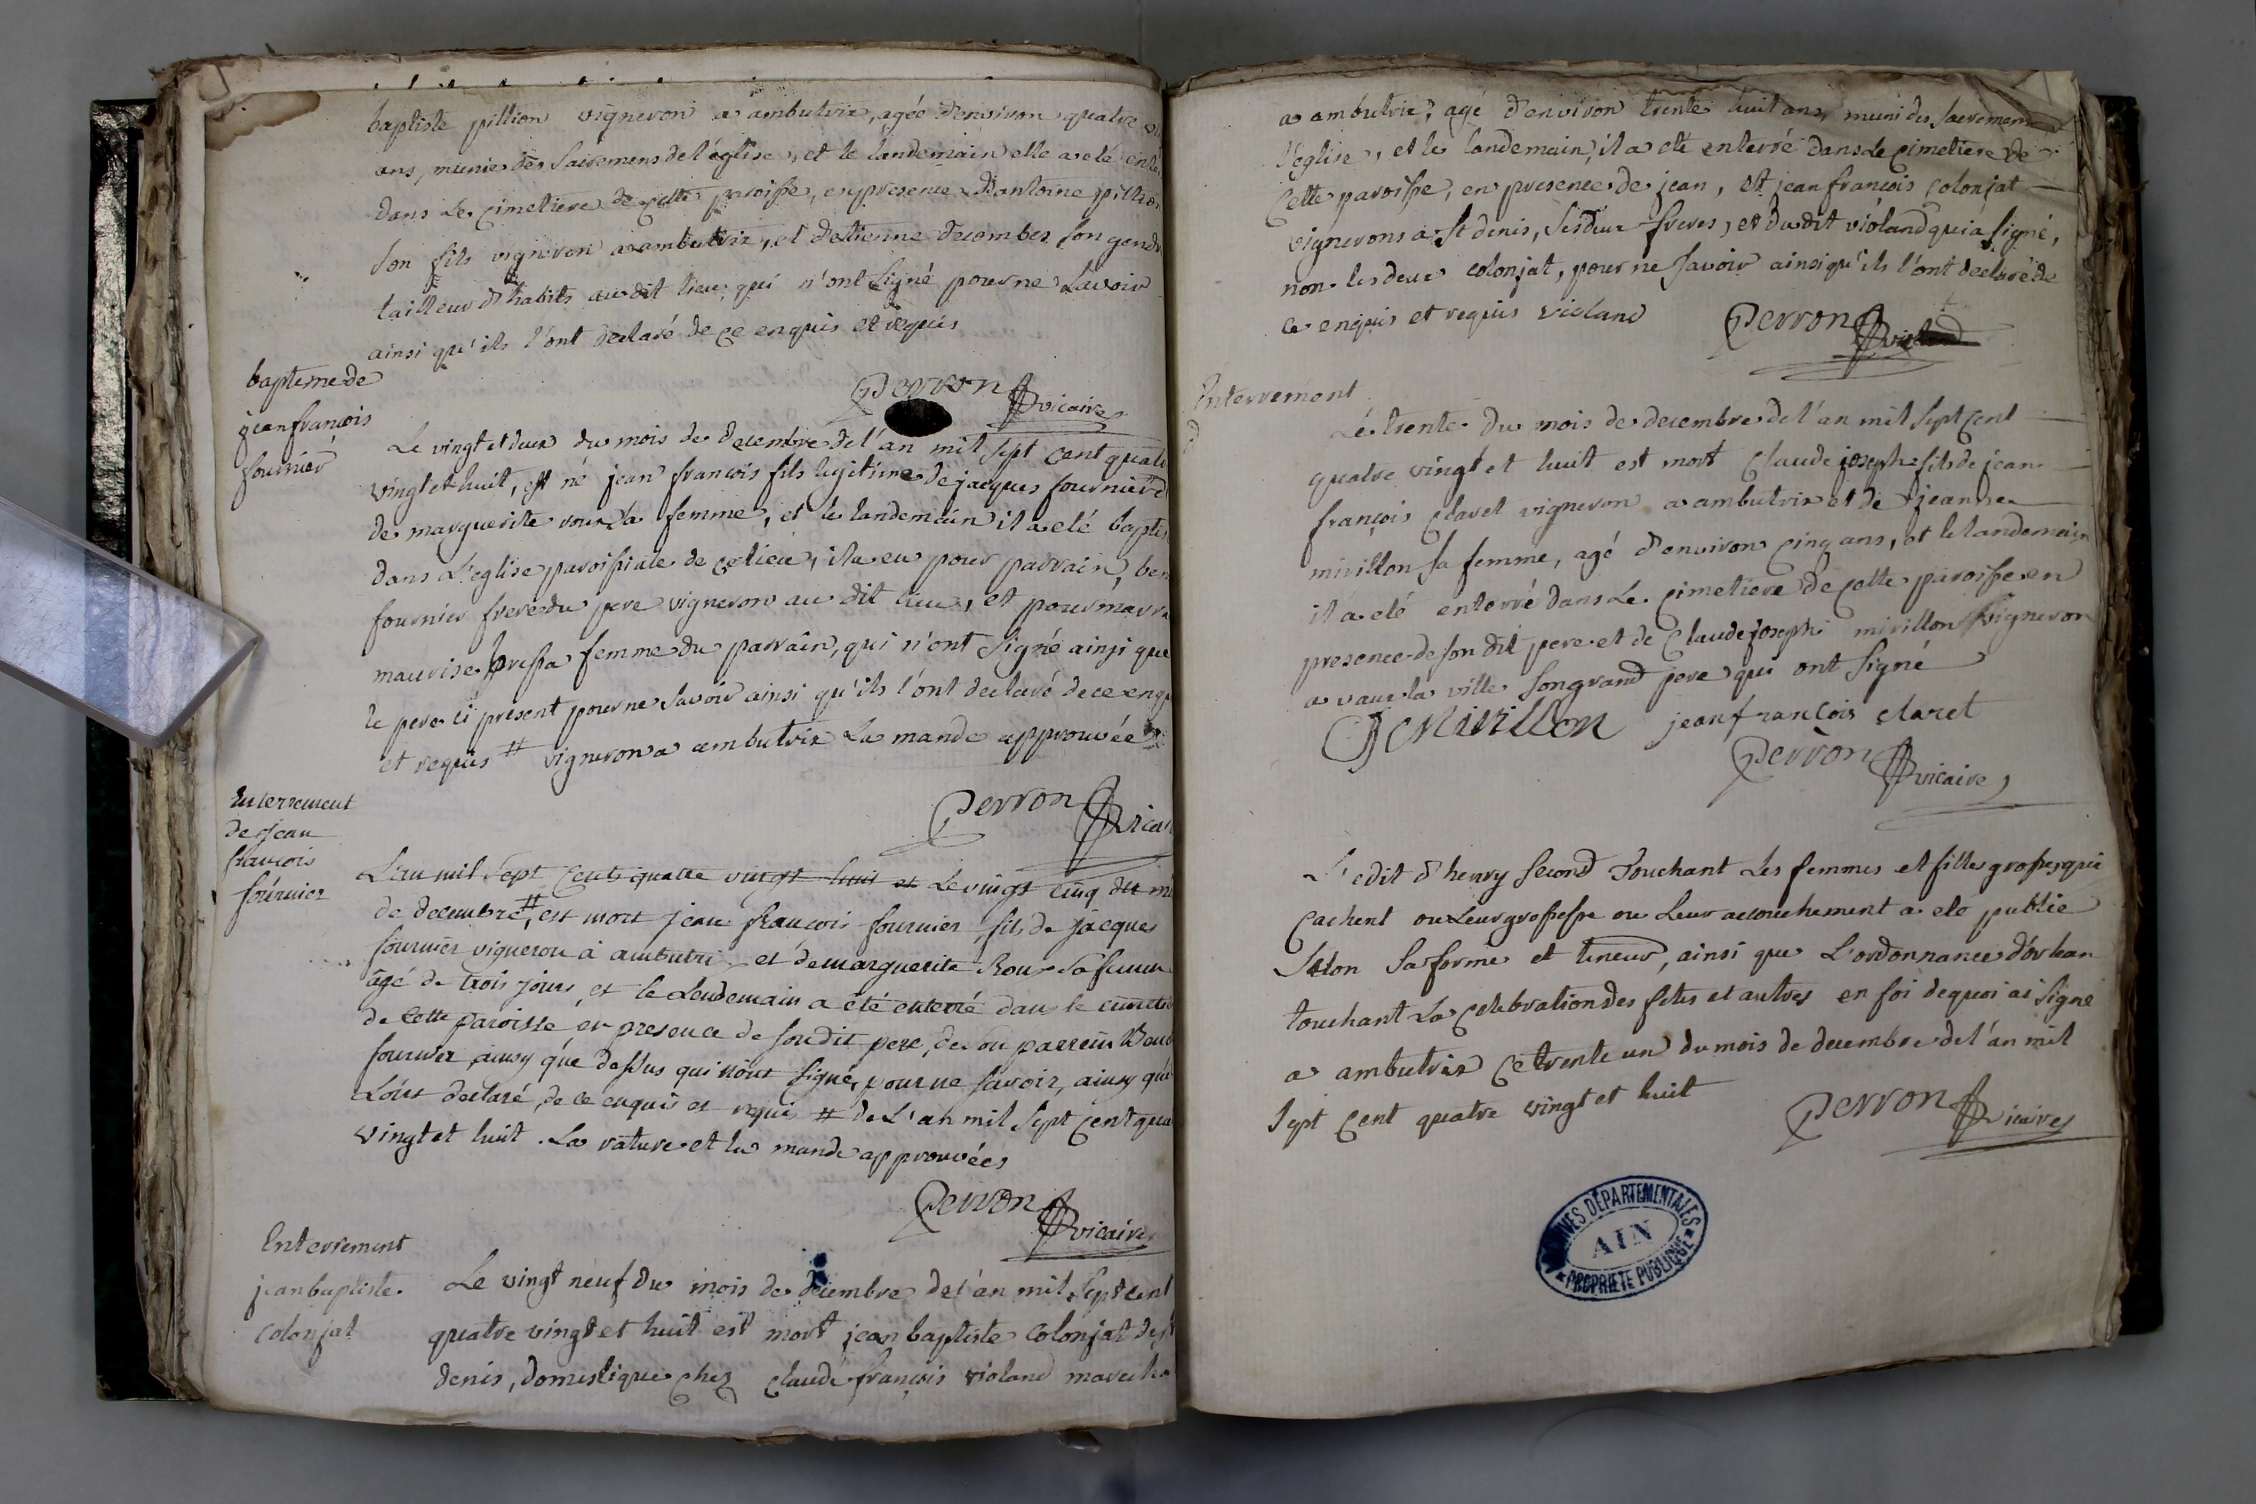 baptiste pillion vigneron a ambutrix, agée d'environ quatre
ans, munie des Sacremens de l'église, et le landemain elle a eté
dans Le cimetiere de cette paroisse, en presence d'antoine pillion
son fils vigneron a ambutrix, et d'etienne decombes son gendr
tailleur d'habits au dit lieu, qui n'ont signé pour ne savoir
ainsi qu'ils l'ont declaré de ce enquis et requis
perron vicaire
bapteme de
jean françois
fournier
Le vingt et deux du mois de decembre de l'an mil sept cent quatr
vingt et huit, est né jean françois fils legitime de jacques fournier
de marguerite roux sa femme, et le landemain il a eté baptis
dans L'eglise paroissiale de ce lieu, il a eu pour parrain, ben
fournier frere du pere vigneron au dit lieu, et pour marra
maurise femme du parrain, qui n'ont signé ainsi que
le pere ci present pour ne savoir ainsi qu'ils l'ont declaré de ce enq
et requis # vigneron a ambutrix La mande approuvée
perron vicai
Enterrement
de jean
francois
fournier
L'an mil sept cents quatre vingt huit et Le vingt cinq du m
de decembre #, est mort jean francois fournier, fils de jacques
fournier vigneron à ambutri et de marguerite Roux Sa femme
agé de trois jours, et le Lendemain a été enterré dans le cimeti
de cette paroisse en presence de son dit pere, de son parrein Benoi
fournier, ainsy que dessus qui n'ont signé, pour ne savoir, ainsy qu
L'ont declaré de ce enquis et requi, # de L'an mil sept cent qua
vingt et huit. La rature et la mande approuvées
perron vicaire
Enterrement
jean baptiste
colonjat
Le vingt neuf du mois de decembre de l'an mil sept cent
quatre vingt et huit est mort jean baptiste colonjat de st
denis, domestique chez claude françois violand marecha
a ambutrix, agé d'environ trente huit ans, muni des sacremens
l'eglise, et le landemain, il a eté enterré dans Le cimetiere de
cette paroisse, en presence de jean, et jean françois colonjat
vignerons a st denis, ses deux freres, et du dit violand qui a signé,
non les deux colonjat, pour ne savoir ainsi qu'ils l'ont declaré de
ce enquis et requis violand
perron
Enterrement
d
Le trente du mois de decembre de l'an mil sept cent
quatre vingt et huit est mort claude joseph fils de jean
françois claret vigneron a ambutrix et de jeanne
mirillon sa femme, agé d'environ cinq ans, et le landemain
il a eté enterré dans Le cimetiere de cette paroisse en
presence de son dit pere et de claude joseph mirillon vigneron
a vaux la ville son grand pere qui ont signé
CJ Mirillon jean françois claret
perron vicaire
L'edit d'henry second touchant Les femmes et filles grosses qui
cachent ou Leur grossesse ou Leur accouchement a eté publié
selon sa forme et teneur, ainsi que L'ordonnance d'orlean
touchant La celebration des fetes et autres en foi de quoi ai signé
a ambutrix ce trente un du mois de decembre de l'an mil
sept cent quatre vingt et huit
perron vicaire
ARCHIVES DÉPARTEMENTALES
AIN
PROPRIÉTÉ PUBLIQUE